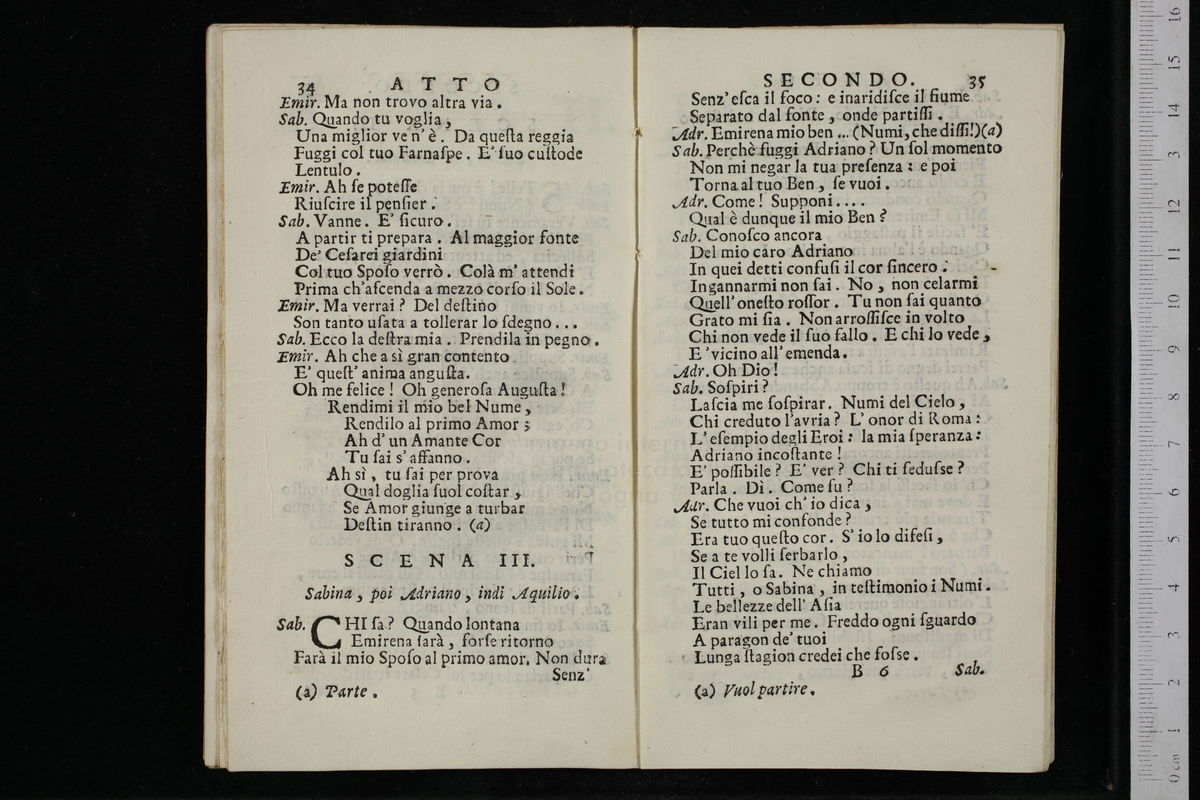 34 ATTO
Emir. Ma non trovo altra via.
Sab. Quando tu voglia,
Una miglior ve n' è. Da queſta reggia
Fuggi col tuo Farnaſpe. E' ſuo cuſtode
Lentulo.
Emir. Ah ſe poteſſe
Riuſcire il penſier.
Sab. Vanne. E' ſicuro.
A partir ti prepara. Al maggior fonte
De' Ceſarei giardini
Col tuo Spoſo verrò. Colà m' attendi
Prima ch'aſcenda a mezzo corſo il Sole.
Emir. Ma verrai? Del deſtino
Son tanto uſata a tollerar lo ſdegno...
Sab. Ecco la deſtra mia. Prendila in pegno.
Emir. Ah che a sì gran contento
E' queſt' anima anguſta.
Oh me felice! Oh generoſa Auguſta!
Rendimi il mio bel Nume,
Rendilo al primo Amor;
Ah d' un Amante Cor
Tu ſai s' affanno.
Ah sì, tu ſai per prova
Qual doglia ſuol coſtar,
Se Amor giunge a turbar
Deſtin tiranno. (a)
SCENA III.
Sabina, poi Adriano, indi Aquilio.
Sab. CHI ſa? Quando lontana
Emirena ſarà, forſe ritorno
Farà il mio Spoſo al primo amor. Non dura
Senz'
(a) Parte.
SECONDO. 35
Senz' eſca il foco: e inaridiſce il fiume
Separato dal fonte, onde partiſſi.
Adr. Emirena mio ben ... (Numi, che diſſi!)(a)
Sab. Perchè fuggi Adriano? Un ſol momento
Non mi negar la tua preſenza: e poi
Torna al tuo Ben, ſe vuoi.
Adr. Come! Supponi....
Qual è dunque il mio Ben?
Sab. Conoſco ancora
Del mio caro Adriano
In quei detti confuſi il cor ſincero.
Ingannarmi non ſai. No, non celarmi
Quell' oneſto roſſor. Tu non ſai quanto
Grato mi ſia. Non arroſſiſce in volto
Chi non vede il ſuo fallo. E chi lo vede,
E' vicino all' emenda.
Adr. Oh Dio!
Sab. Soſpiri?
Laſcia me ſoſpirar. Numi del Cielo,
Chi creduto l'avria? L' onor di Roma:
L' eſempio degli Eroi: la mia ſperanza:
Adriano incoſtante!
E' poſſibile? E' ver? Chi ti ſeduſse?
Parla. Dì. Come fu?
Adr. Che vuoi ch' io dica,
Se tutto mi confonde?
Era tuo queſto cor. S' io lo difeſi,
Se a te volli ſerbarlo,
Il Ciel lo ſa. Ne chiamo
Tutti, o Sabina, in teſtimonio i Numi.
Le bellezze dell' Aſia
Eran vili per me. Freddo ogni ſguardo
A paragon de' tuoi
Lunga ſtagion credei che foſse.
B 6 Sab.
(a) Vuol partire.